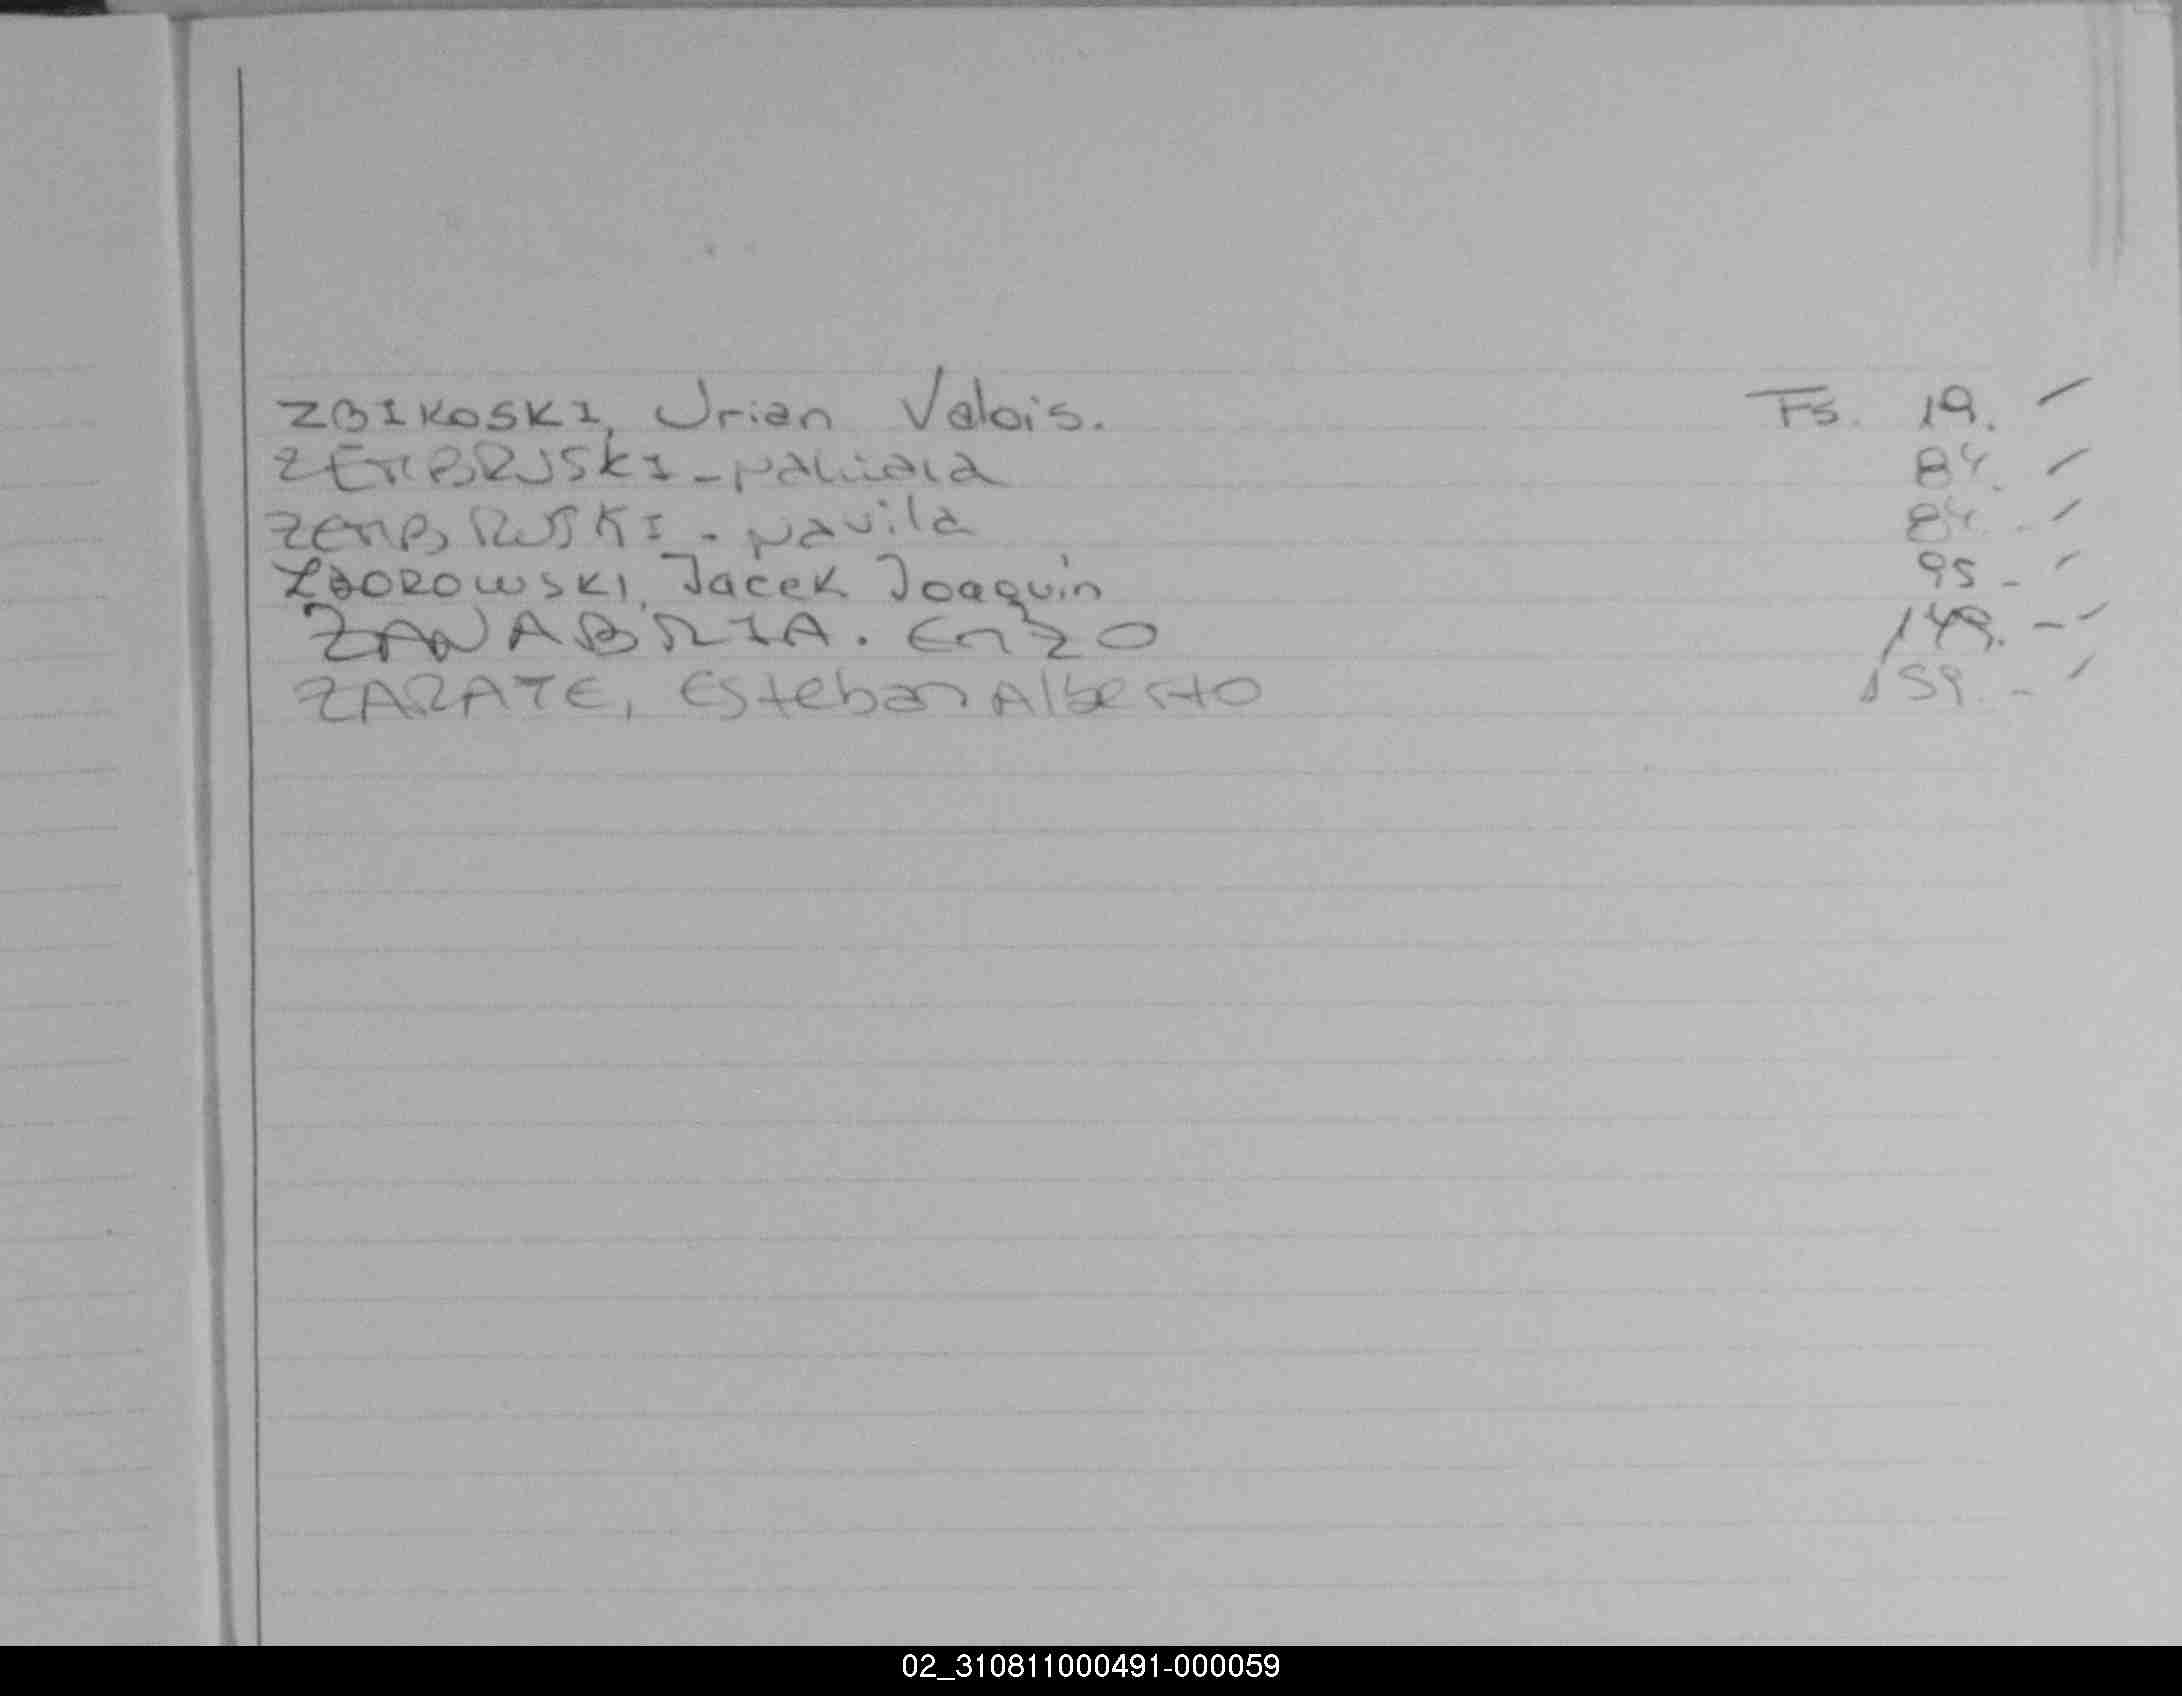 ZBIKOSKI, Urian Valois. Fs. 19. -
ZEMBRUSKI - 84. -
ZEMBRUSKI - Navila 84. -
ZBOROWSKI, Jacek Joaquín 95 -
ZANABRIA. Enzo 149. -
ZARATE, Esteban Alberto 159. -
02_310811000491-000059